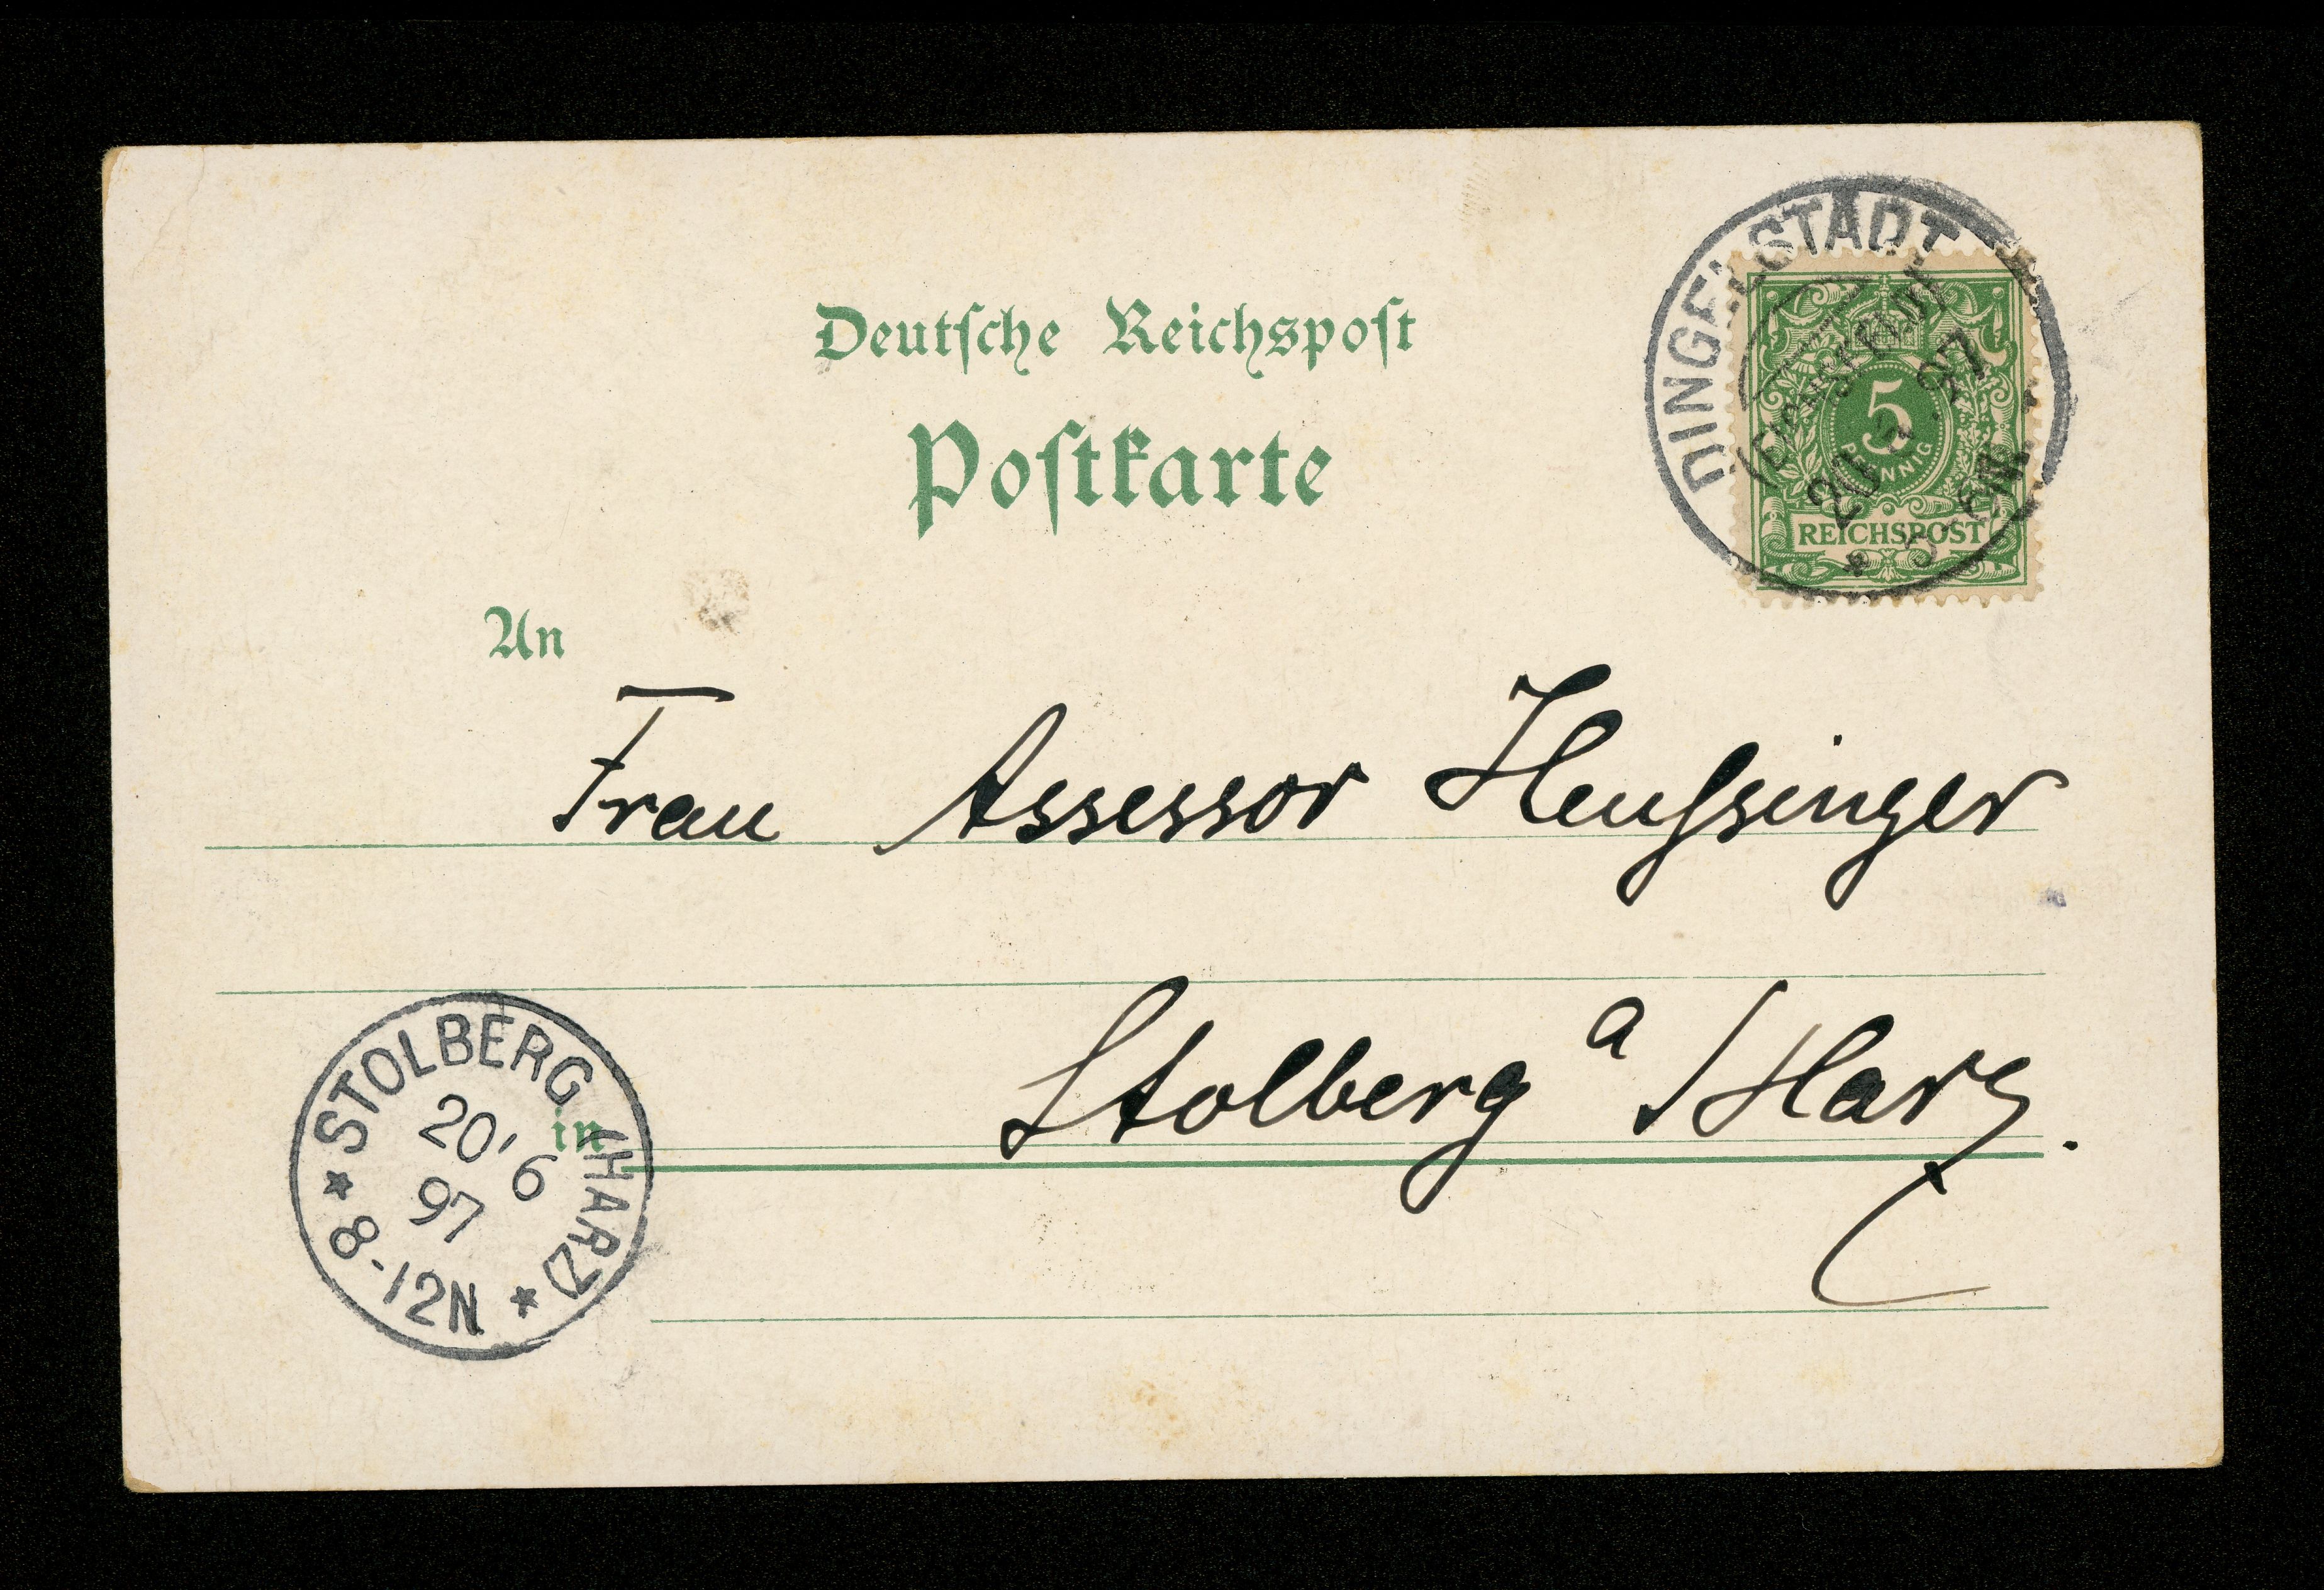 Deutsche Reichspost
Postkarte
DINGELSTÄDT
(Eichsfeld)
20 97
5
PFENNIG
REICHSPOST
An
Frau Assessor Heussinger
Stolberg a/Harz.
in
STOLBERG (HARZ)
20 6
97
8-12N